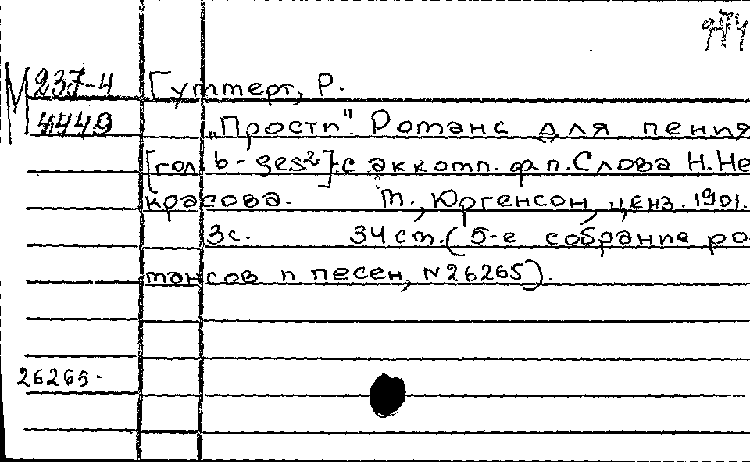 974
М 237-4 Гуттерт, Р.
4449 „Прости". Романс для пения
[гол. b-ges²] с акком. ф.п. Слова Н. Не
красова. М., Юргенсон, ценз. 1901.
3с. 34 см. (5-е собрание ро
мансов и песен, N 26265).
26265-